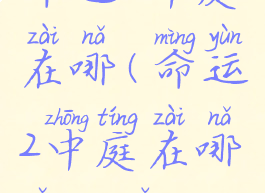 zài nǎ mìng yùn
在哪(命运
zhōng tíng zài nǎ
2中庭在哪